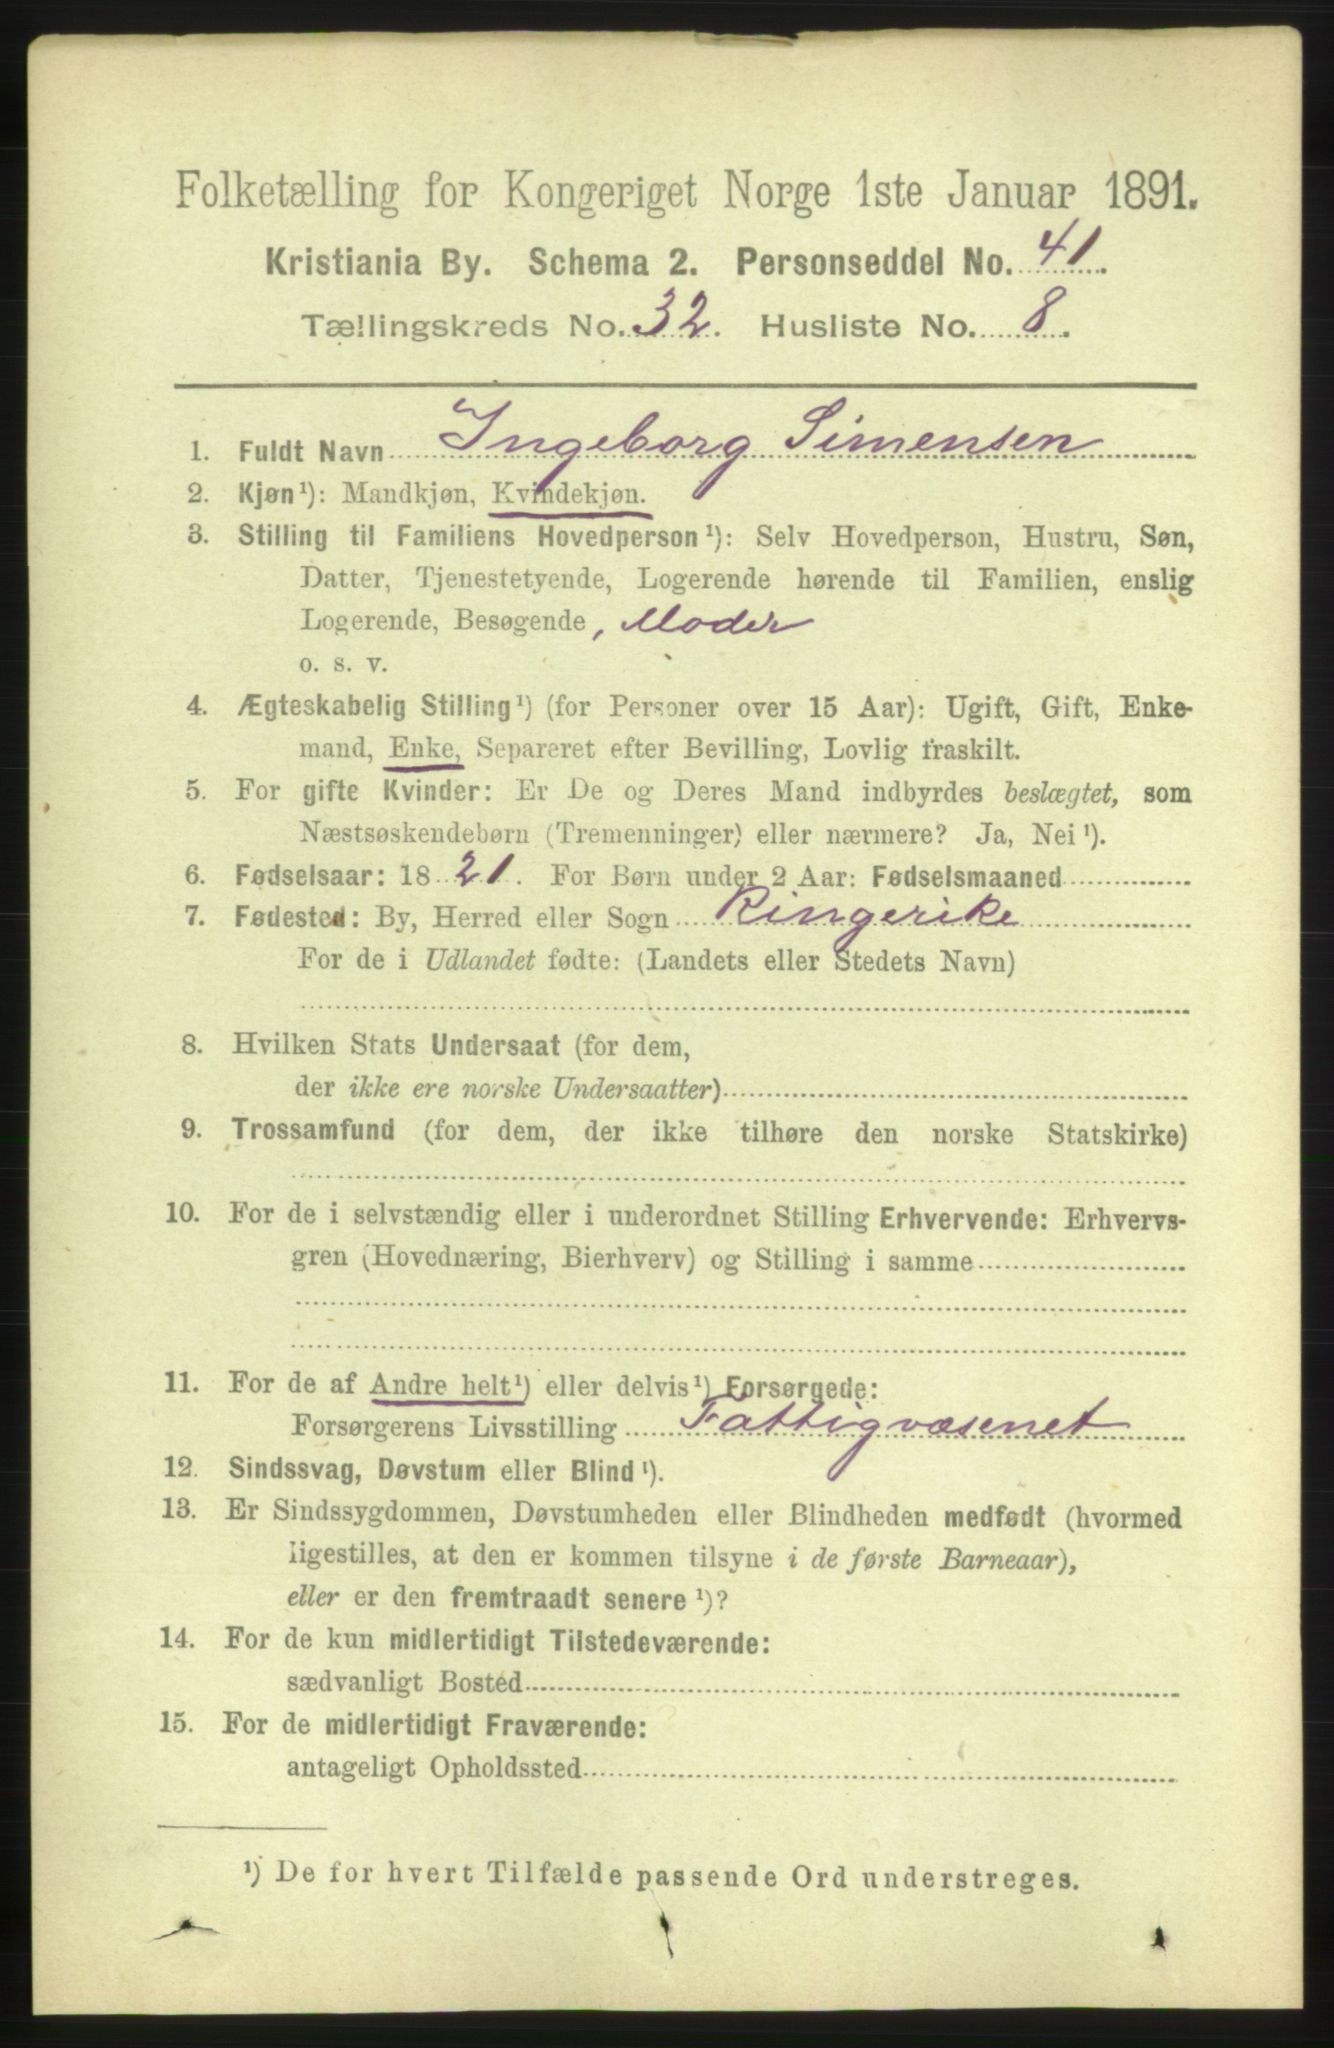 Folketælling for Kongeriget Norge 1ste Januar 1891.
Kristiania By. Schema 2. Personseddel No. 41.
Tællingskreds No. 32. Husliste No. 8.
1. Fuldt Navn Ingeborg Simensen
2. Kjøn¹): Mandkjøn, Kvindekjøn.
3. Stilling til Familiens Hovedperson¹): Selv Hovedperson, Hustru, Søn,
Datter, Tjenestetyende, Logerende hørende til Familien, enslig
Logerende, Besøgende, Moder
o. s. v.
4. Ægteskabelig Stilling¹) (for Personer over 15 Aar): Ugift, Gift, Enke-
mand, Enke, Separeret efter Bevilling, Lovlig fraskilt.
5. For gifte Kvinder: Er De og Deres Mand indbyrdes beslægtet, som
Næstsøskendebørn (Tremenninger) eller nærmere? Ja, Nei¹).
6. Fødselsaar: 1821. For Børn under 2 Aar: Fødselsmaaned
7. Fødested: By, Herred eller Sogn Ringerike
For de i Udlandet fødte: (Landets eller Stedets Navn)
8. Hvilken Stats Undersaat (for dem,
der ikke ere norske Undersaatter)
9. Trossamfund (for dem, der ikke tilhøre den norske Statskirke)
10. For de i selvstændig eller i underordnet Stilling Erhvervende: Erhvervs-
gren (Hovednæring, Bierhverv) og Stilling i samme
11. For de af Andre helt¹) eller delvis¹) Forsørgede:
Forsørgerens Livsstilling Fattigvæsenet
12. Sindssvag, Døvstum eller Blind¹).
13. Er Sindssygdommen, Døvstumheden eller Blindheden medfødt (hvormed
ligestilles, at den er kommen tilsyne i de første Barneaar),
eller er den fremtraadt senere¹)?
14. For de kun midlertidigt Tilstedeværende:
sædvanligt Bosted
15. For de midlertidigt Fraværende:
antageligt Opholdssted
¹) De for hvert Tilfælde passende Ord understreges.